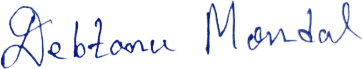 Debtanu Mondal